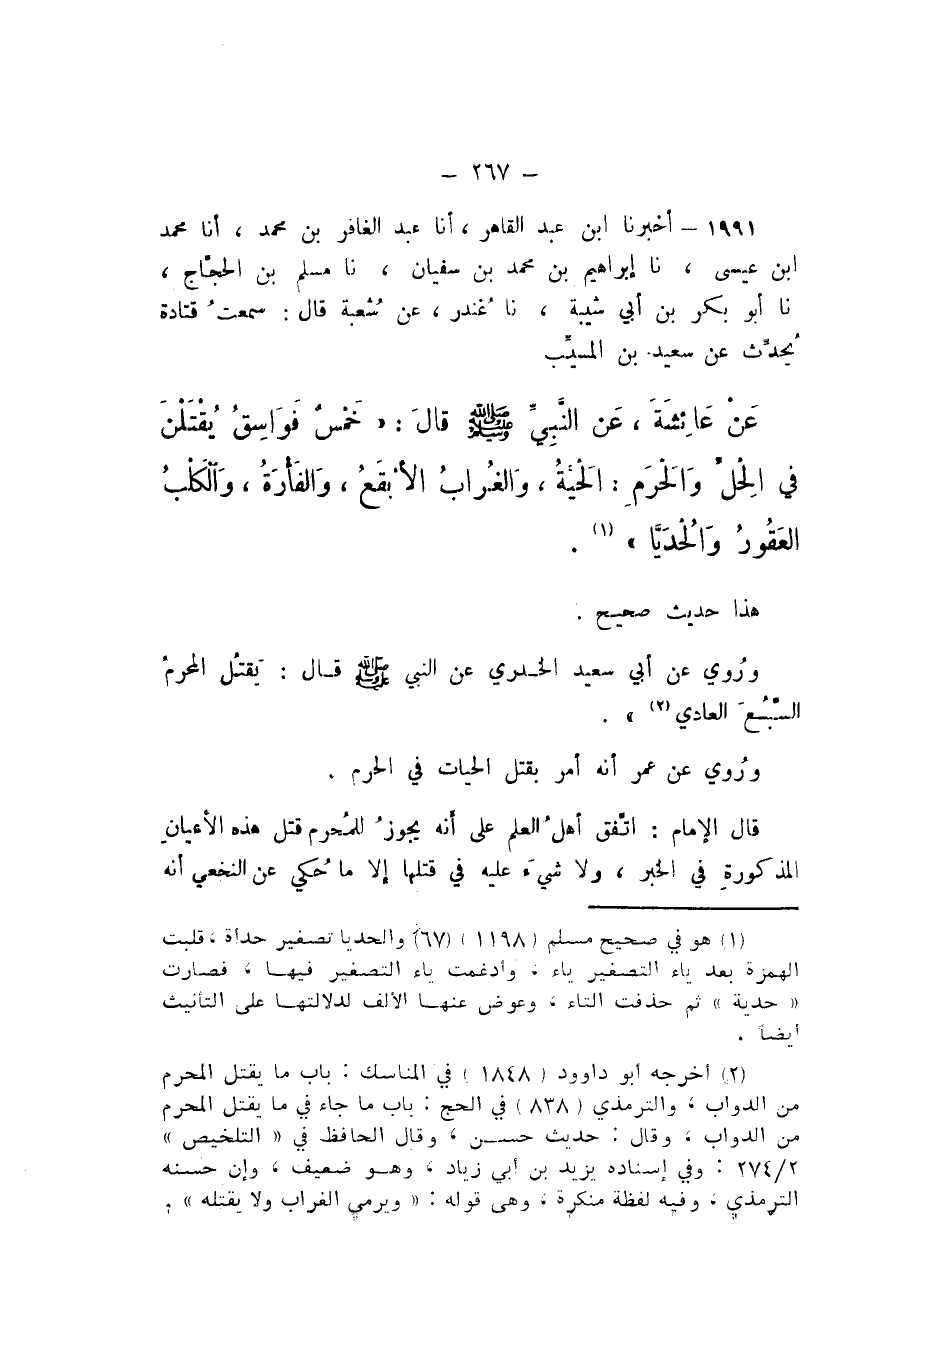 – ٢٦٧ –
١٩٩١ – أخبرنا ابن عبد القاهر ، أنا عبد الغافر بن محمد ، أنا محمد
ابن عيسى ، نا إبراهيم بن محمد بن سفيان ، نا مسلم بن الحجَّاج ،
نا أبو بكر بن أبي شيبة ، نا غُندر ، عن شُعبة قال : سمعتُ قتادة
يُحدِّث عن سعيد بن المسيِّب
عَنْ عَائِشَةَ ، عَن النَّبِيِّ ﷺ قالَ : « خَمْسٌ فَوَاسِقُ يُقْتَلْنَ
في الحِلِّ وَالحَرَمِ : الحَيَّةُ ، والغُرابُ الأَبْقَعُ ، وَالفَأْرَةُ ، وَالكَلْبُ
العَقُورُ وَالحُدَيَّا » (١) .
هذا حديث صحيح .
ورُوي عن أبي سعيد الخدري عن النبي ﷺ قال : يَقتلُ المحرمُ
السَّبُعَ العادي (٢) » .
ورُوي عن عمر أنه أمر بقتل الحيات في الحرم .
قال الإمام : اتَّفق أهلُ العلم على أنه يجوزُ للمُحرم قتل هذه الأعيانِ
المذكورةِ في الخبر ، ولا شيءَ عليه في قتلها إلا ما حُكي عن النخعي أنه
(١) هو في صحيح مسلم ( ١١٩٨ ) (٦٧) والحديا تصغير حدأة ، قلبت
الهمزة بعد ياء التصغير ياء ، وأدغمت ياء التصغير فيها ، فصارت
« حدية » ثم حذفت التاء ، وعوض عنها الألف لدلالتها على التأنيث
أيضاً .
(٢) أخرجه أبو داوود ( ١٨٤٨ ) في المناسك : باب ما يقتل المحرم
من الدواب ، والترمذي ( ٨٣٨ ) في الحج : باب ما جاء في ما يقتل المحرم
من الدواب ، وقال : حديث حسن ، وقال الحافظ في « التلخيص »
٢٧٤/٢ : وفي إسناده يزيد بن أبي زياد ، وهو ضعيف ، وإن حسنه
الترمذي ، وفيه لفظة منكرة ، وهي قوله : « ويرمي الغراب ولا يقتله » .